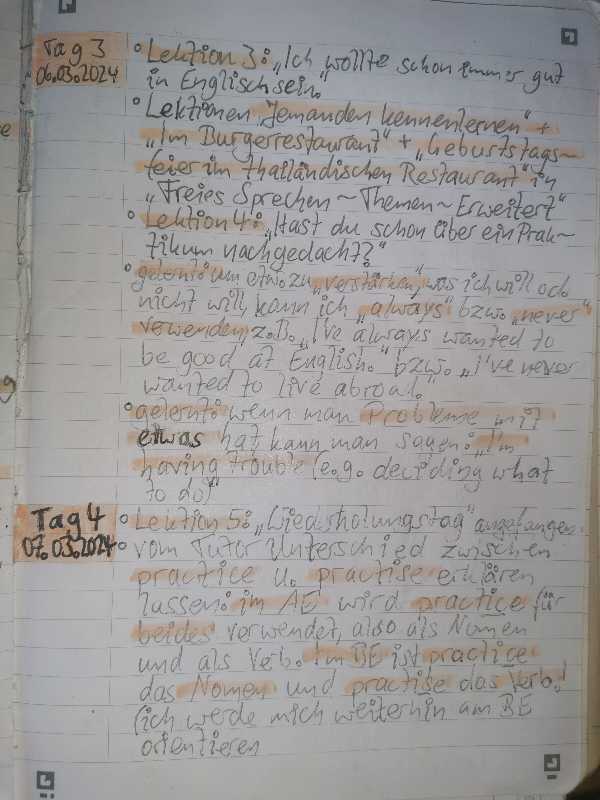 Tag 3
06.03.2024
• Lektion 3: „Ich wollte schon immer gut
in Englisch sein."
• Lektionen „Jemanden kennenlernen" +
„Im Burgerrestaurant" + „Geburtstags-
feier im thailändischen Restaurant" in
„Freies Sprechen - Themen - Erweitert"
• Lektion 4: „Hast du schon über ein Prak-
tikum nachgedacht?"
• gelernt: um etw. zu „verstärken", was ich will od.
nicht will, kann ich „always" bzw. „never"
verwenden, z.B. „I've always wanted to
be good at English." bzw. „I've never
wanted to live abroad."
• gelernt: wenn man Probleme mit
etwas hat kann man sagen: „I'm
having trouble (e.g. deciding what
to do)"
Tag 4
07.03.2024
• Lektion 5: „Wiederholungstag" angefangen
• vom Tutor Unterschied zwischen
practice u. practise erklären
lassen: im AE wird practice für
beides verwendet, also als Nomen
und als Verb. Im BE ist practice
das Nomen und practise das Verb!
(ich werde mich weiterhin am BE
orientieren